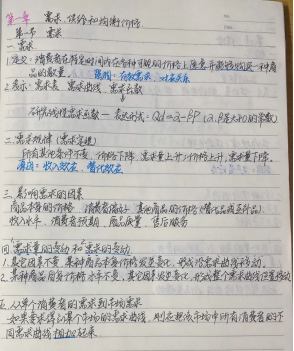 第一章 需求、供给和均衡价格
第一节 需求
一.需求
1.定义:消费者在特定时间内在各种可能的价格上愿意并能够购买一种商品的数量
2.表示:需求表 需求曲线 需求函数
研究线性需求函数— 表达形式:Qd=α-βP (α.β是大于0的常数)
二.需求规律(需求定理)
所有其他条件不变,价格下降,需求量上升;价格上升,需求量下降。
收入效应,替代效应
三.影响需求的因素
商品本身的价格 消费者偏好 其他商品的价格(替代品或互补品)
收入水平 消费者预期 商品质量 售后服务
四.需求量的变动和需求的变动
1.其它因素不变,某种商品本身价格发生变化,形成沿需求曲线移动。
2.某种商品自身价格水平不变,其它因素发生变化,形成整个需求曲线位置移动
五.从单个消费者的需求到市场需求
如果要求得到某个市场的需求曲线,则应把该市场中所有消费者的不
同需求曲线相加起来